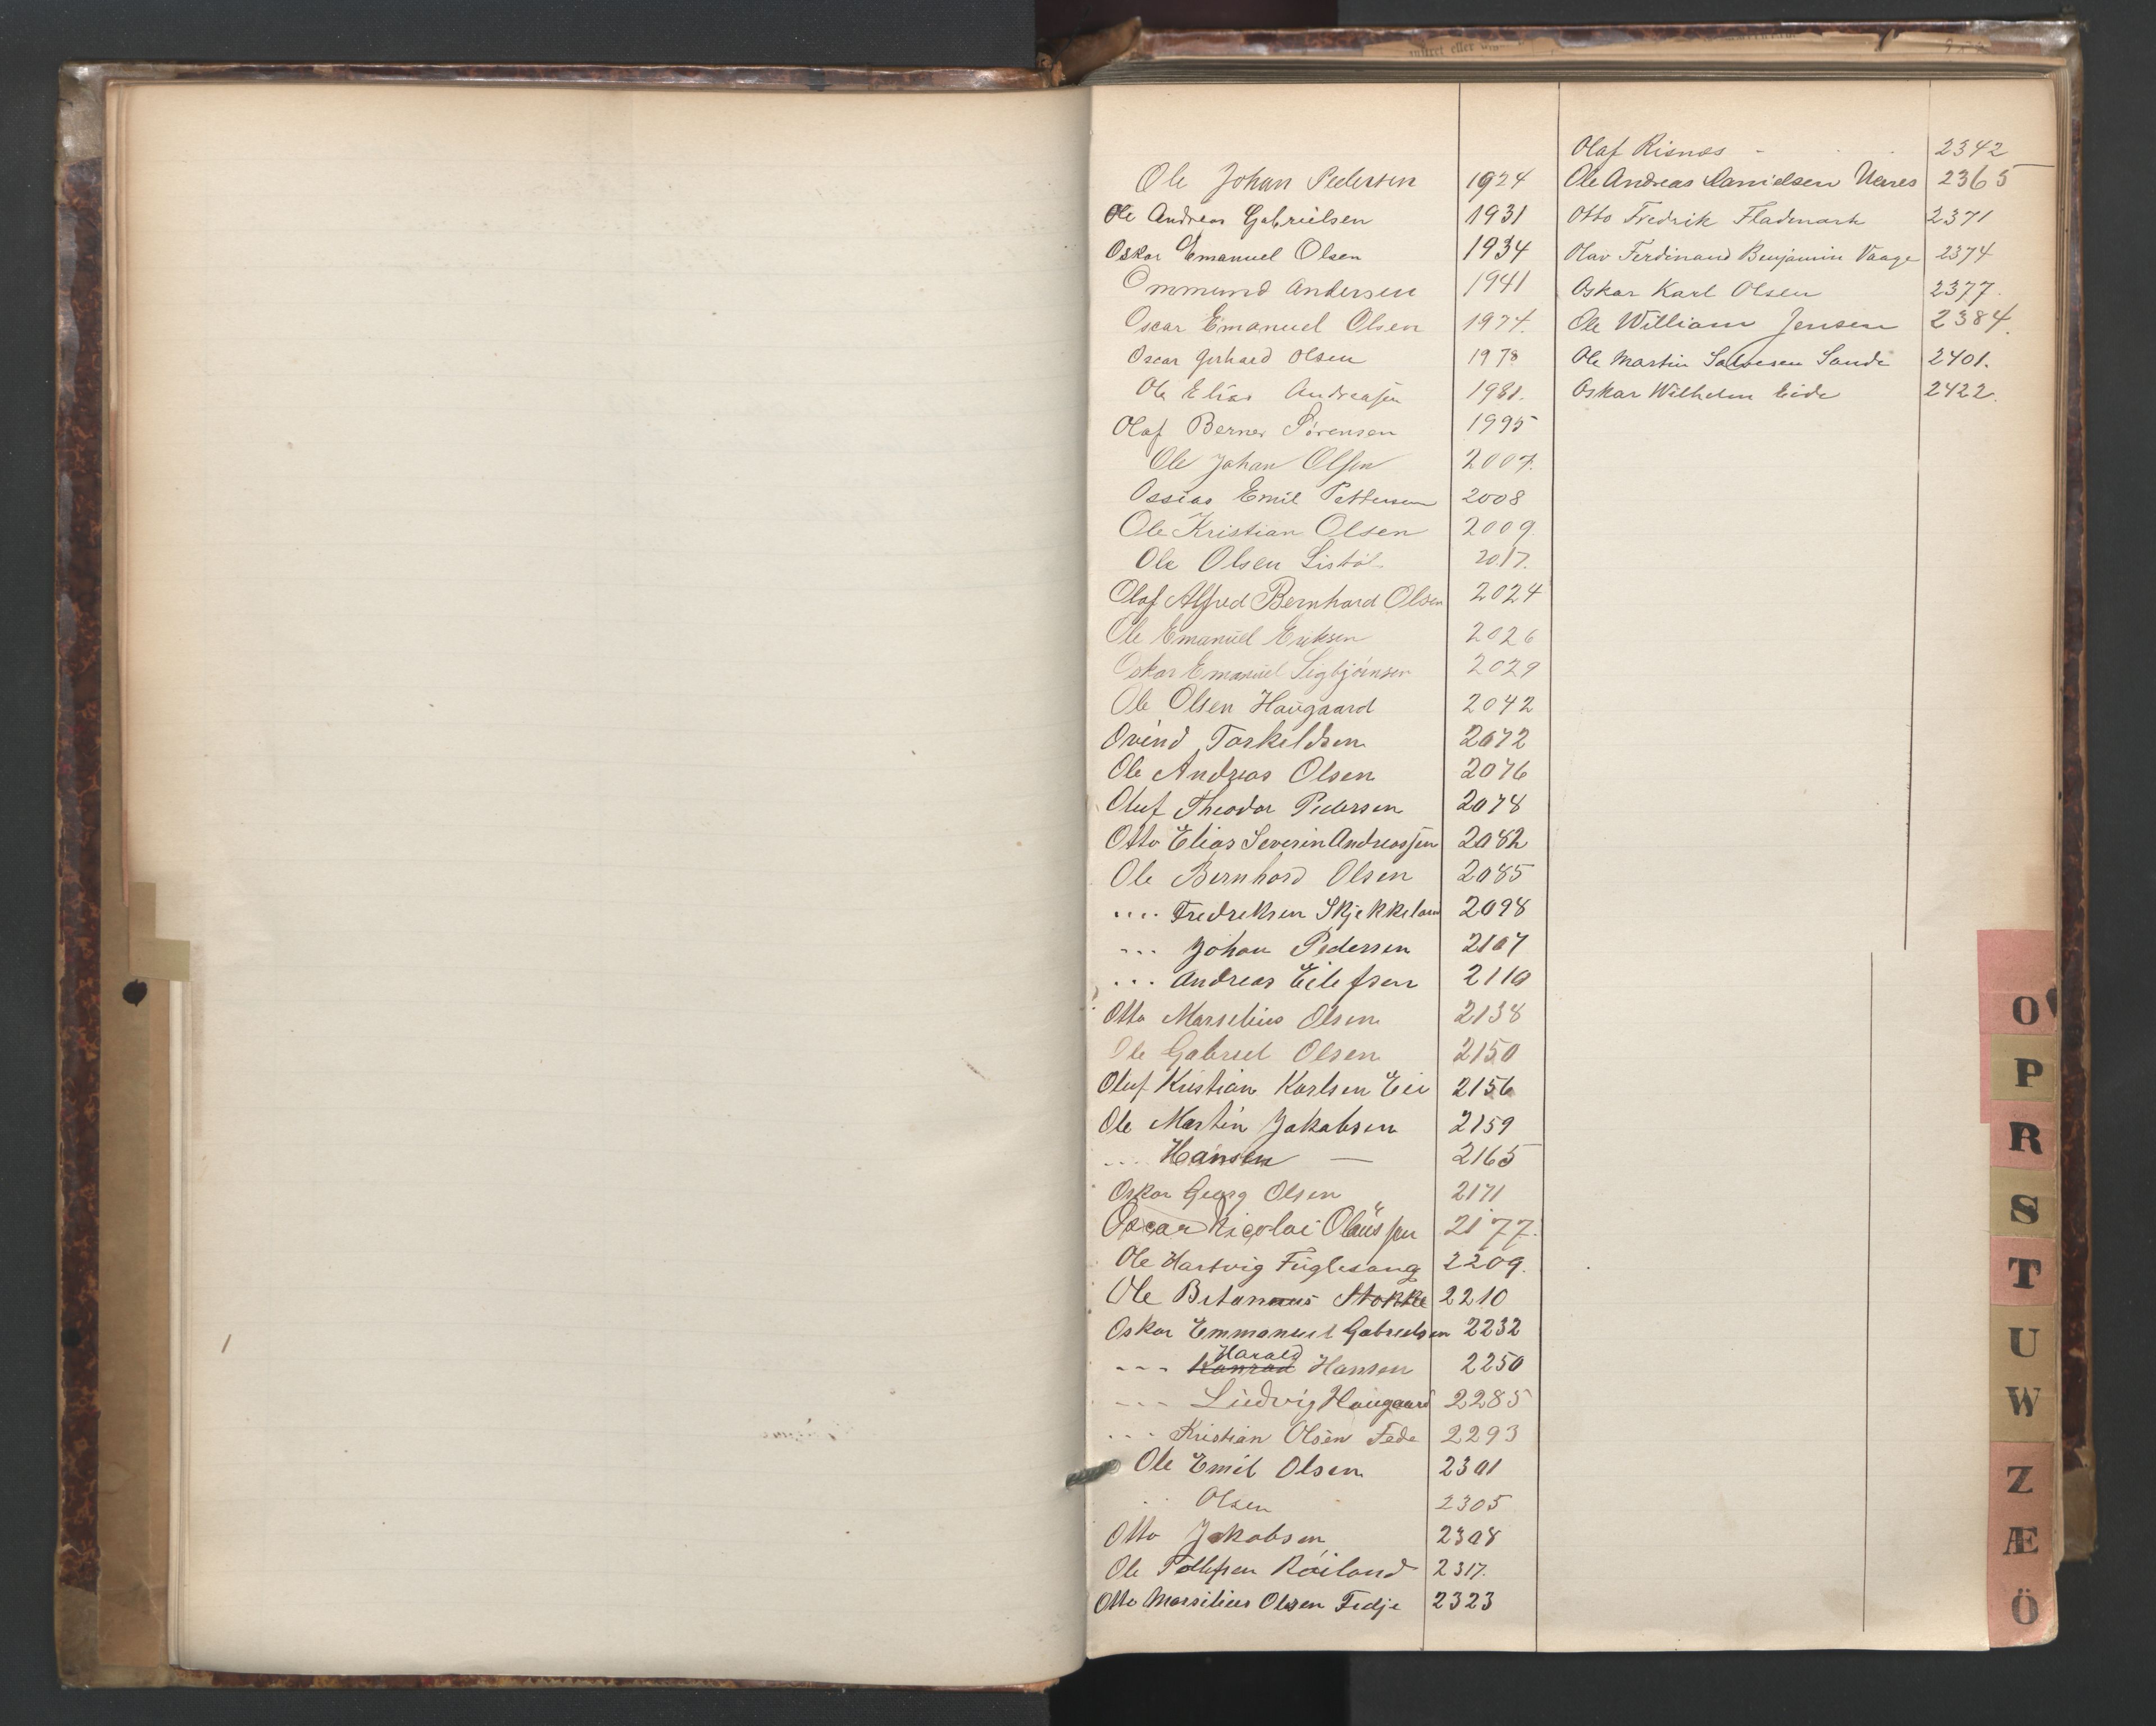 Ole Johan Pedersen 1924
Ole Andreas Gabrielsen 1931
Oskar Emanuel Olsen 1934
Ommund Andersen 1941
Oscar Emanuel Olsen 1974.
Oscar Gerhard Olsen 1978
Ole Elias Andreasen 1981.
Olaf Berner Sörensen 1995
Ole Johan Olsen 2007.
Ossias Emil Pettersen 2008
Ole Kristian Olsen 2009.
Ole Olsen Listöl 2017.
Olaf Alfred Bernhard Olsen 2024
Ole Emanuel Eriksen 2026
Oskar Emanuel Sigbjörnsen 2029
Ole Olsen Haugaard 2042
Ovind Torkeldsen 2072
Ole Andreas Olsen 2076
Oluf Theodor Pedersen 2078
Otto Elias Severin Andreassen 2082
Ole Bernhard Olsen 2085
.... Fredreksen Skjekkeland 2098
... Johan Pedersen 2107
... Andreas Eilefsen 2110
Otto Marselius Olsen 2138
Ole Gabriel Olsen 2150
Oluf Kristian Karlsen Eie 2156
Ole Martin Jakobsen 2159
... Hansen — 2165
Oskar Georg Olsen 2171
Oscar Nicolai Olaussen 2177.
Ole Hartvig Fuglesang 2209.
Ole Betanius Stokke 2210
Oskar Emmanuel Gabrielsen 2232
Harald
--- Konrad Hansen 2250
--- Ludvig Haugaard 2285
... Kristian Olsen Fede 2293
Ole Emil Olsen 2301
.. Olsen 2305
Otto Jakobsen 2308
Ole Tollefsen Röiland 2317.
Otto Marsilius Olsen Fedje 2323
Olaf Risnes - 2342
Ole Andreas Danielsen Venes 2365
Otto Fredrik Fladmark 2371
Olav Ferdinand Benjamin Vaage 2374
Oskar Karl Olsen 2377.
Ole William Jensen 2384.
Ole Martin Salvesen Sande 2401.
Oskar Wilhelm Eide 2422.
O
P
R
S
T
U
W
Z
Æ
Ö